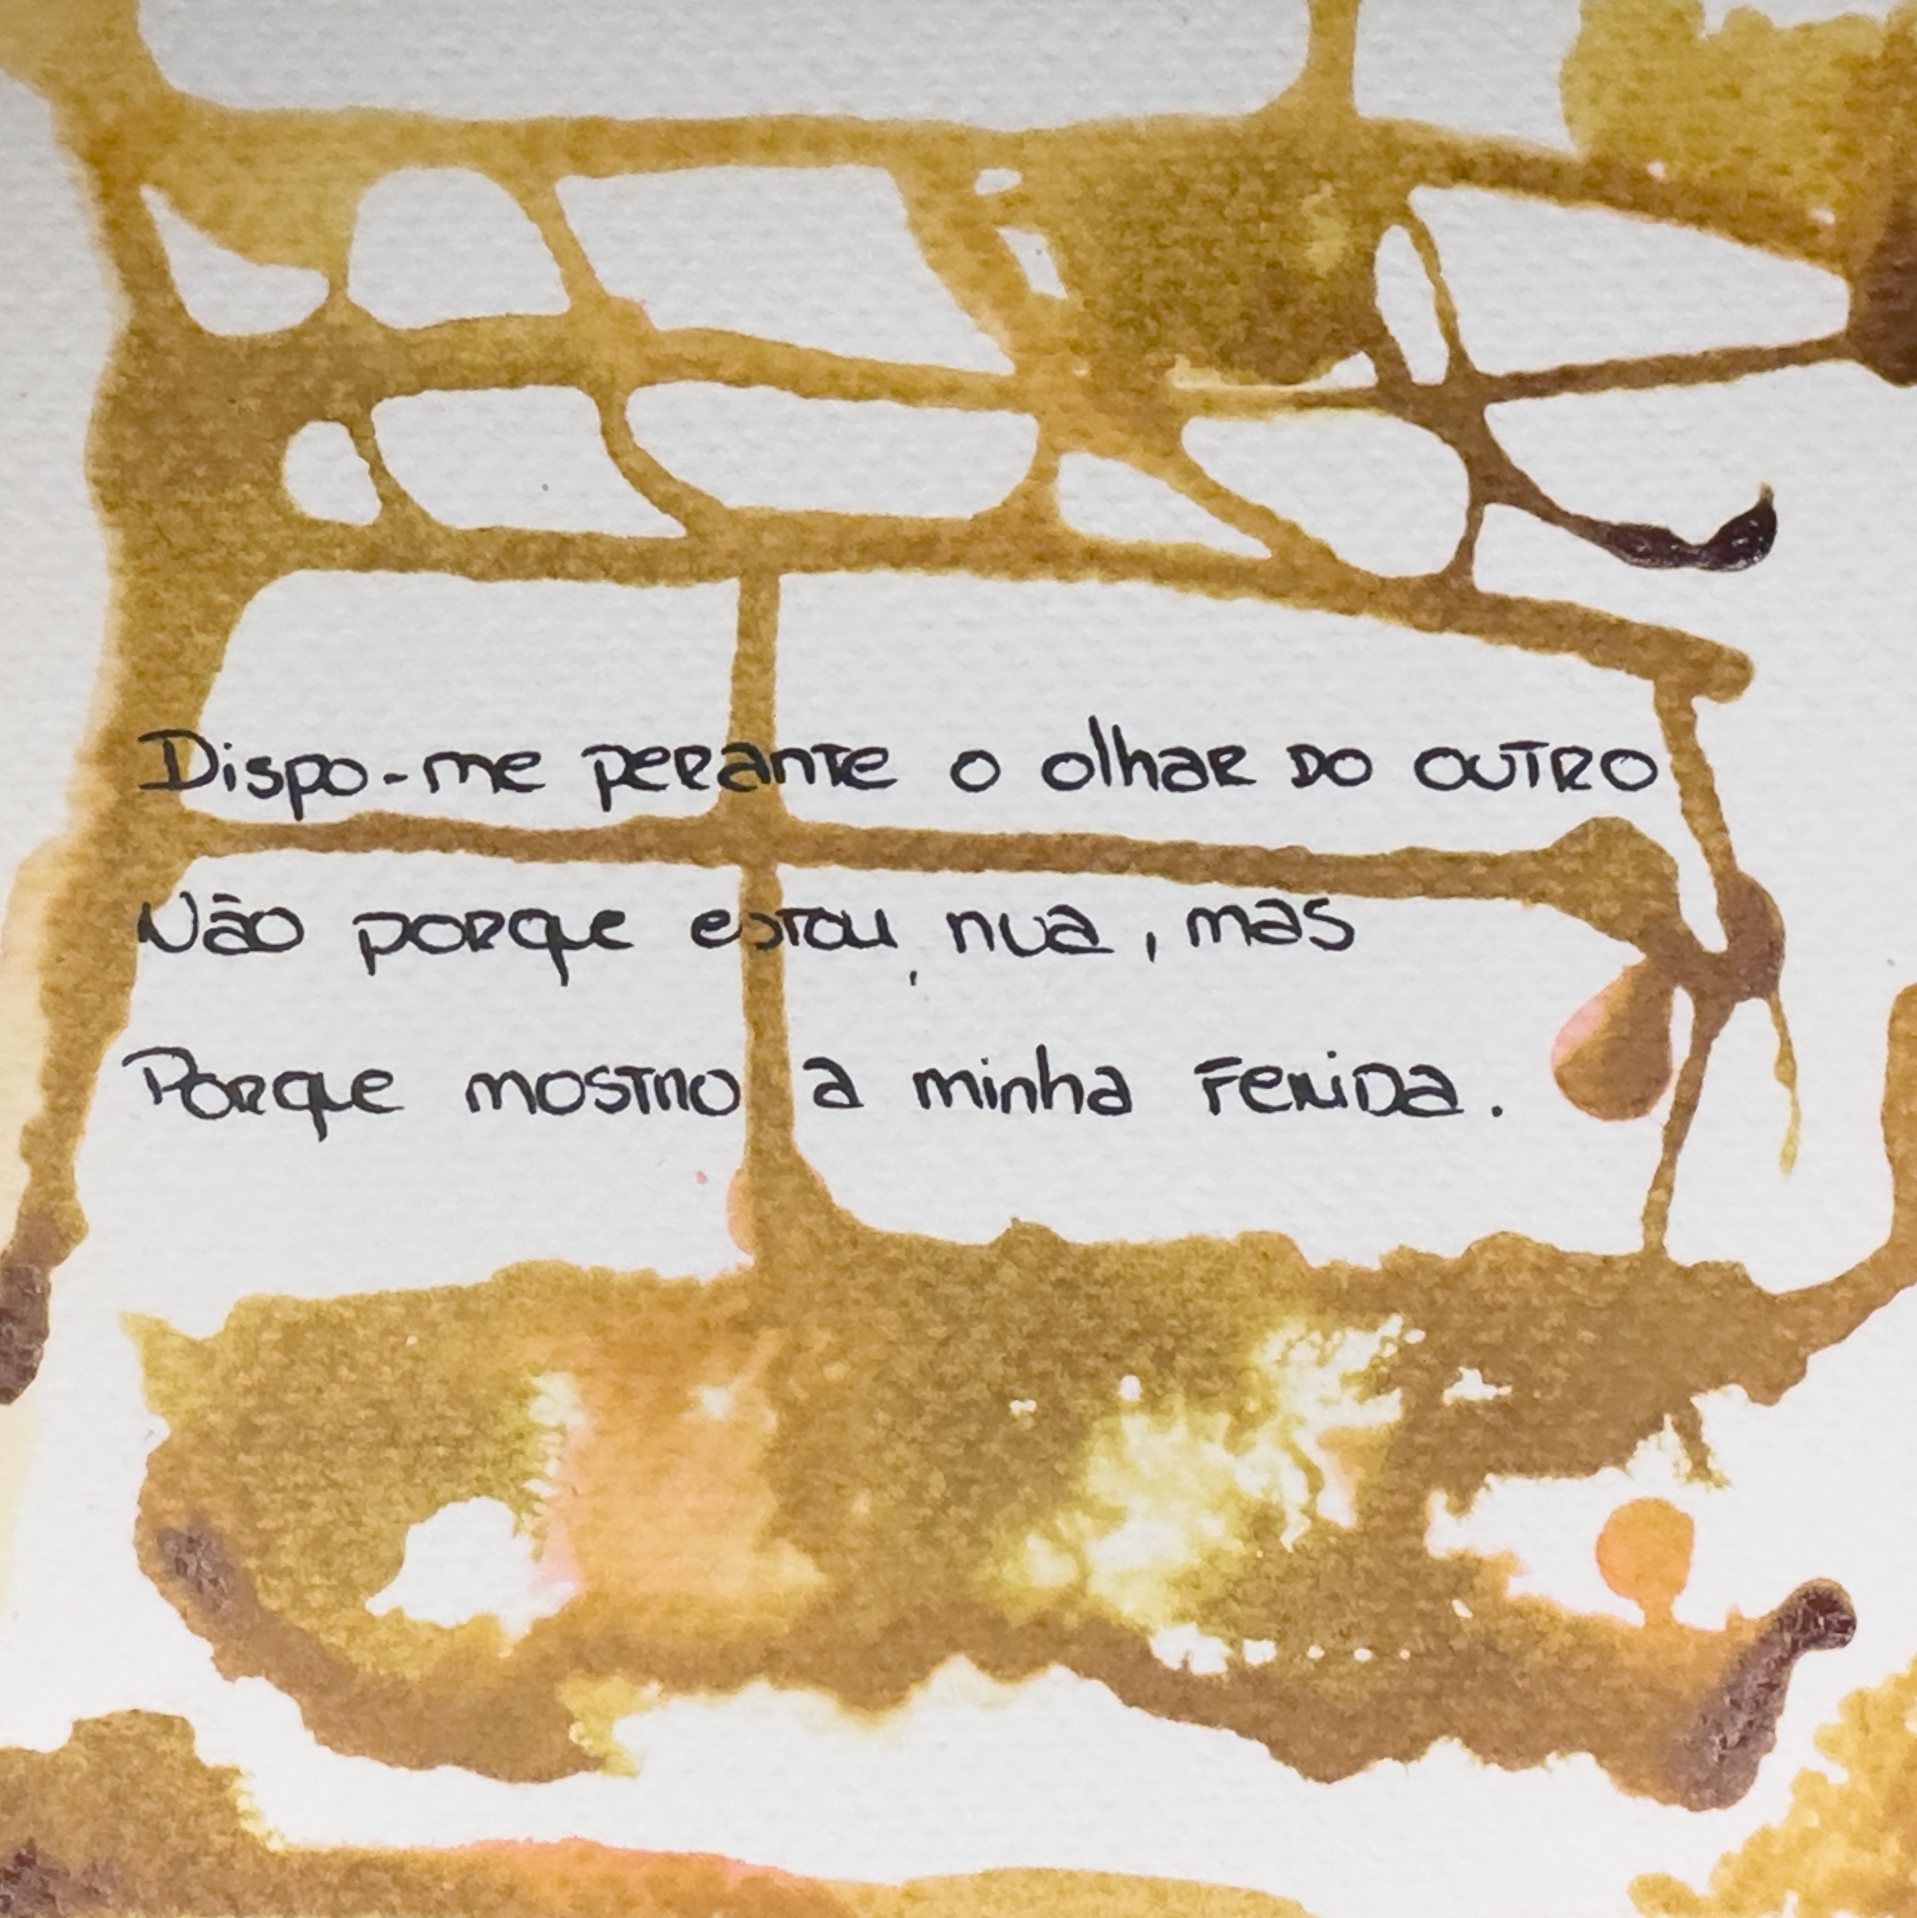 Dispo-me perante o olhar do outro
Não porque estou, nua, mas
Porque mostro a minha ferida.